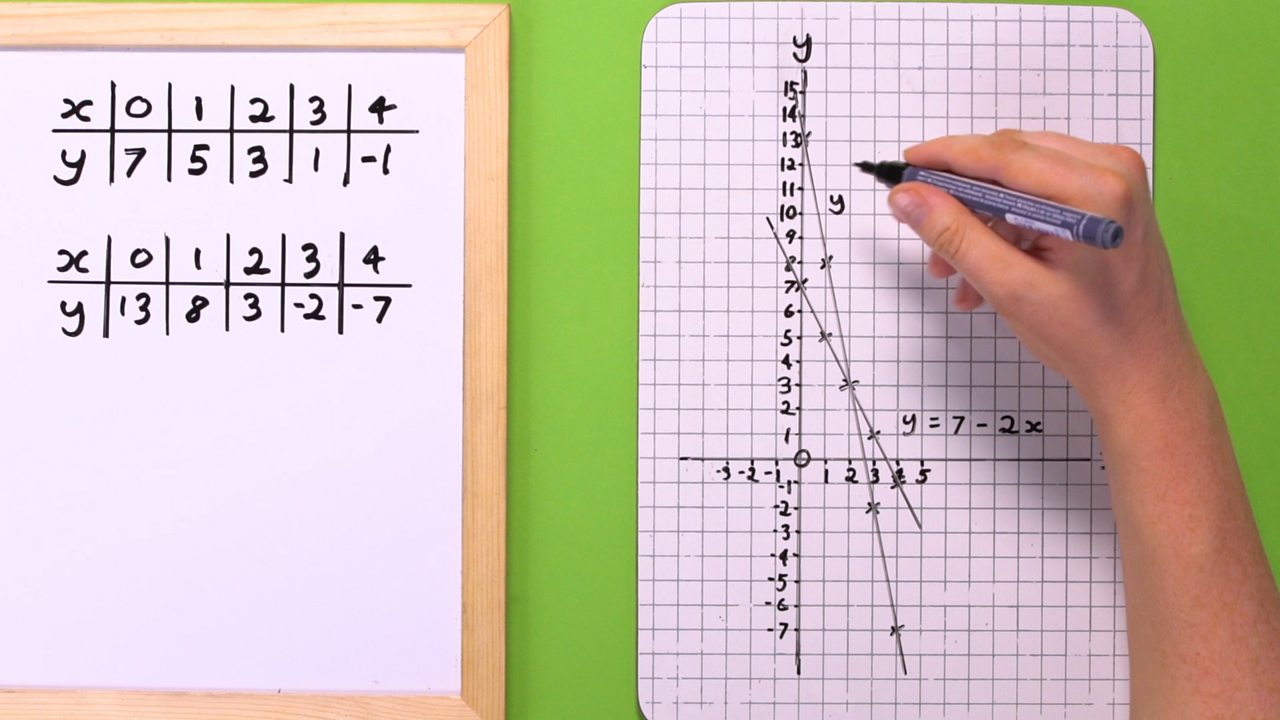 x 0 1 2 3 4
y 7 5 3 1 -1
x 0 1 2 3 4
y 13 8 3 -2 -7
y
15
14
13
12
11
10
y
9
8
7
6
5
4
3
2
1
y = 7 - 2x
-3 -2 -1 0 1 2 3 4 5
-1
-2
-3
-4
-5
-6
-7